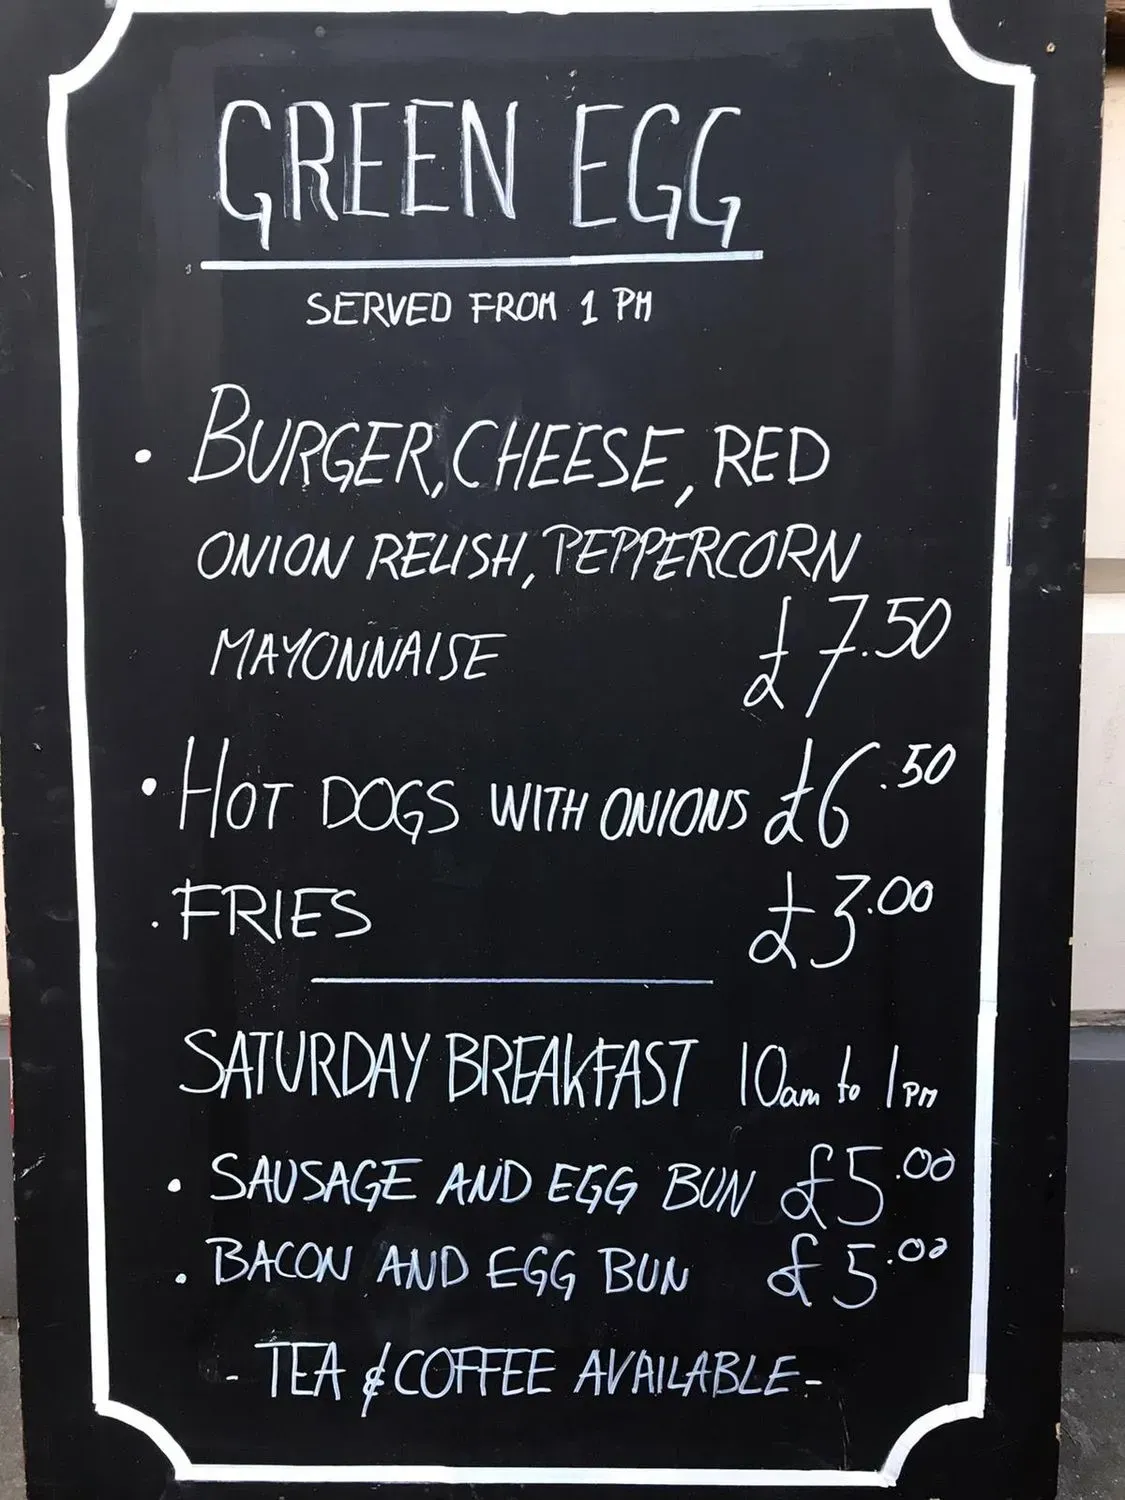 GREEN EGG
SERVED FROM 1 PM
• BURGER, CHEESE, RED
ONION RELISH, PEPPERCORN
MAYONNAISE £7.50
• HOT DOGS WITH ONIONS £6.50
• FRIES £3.00
SATURDAY BREAKFAST 10am to 1PM
• SAUSAGE AND EGG BUN £5.00
• BACON AND EGG BUN £5.00
- TEA & COFFEE AVAILABLE -